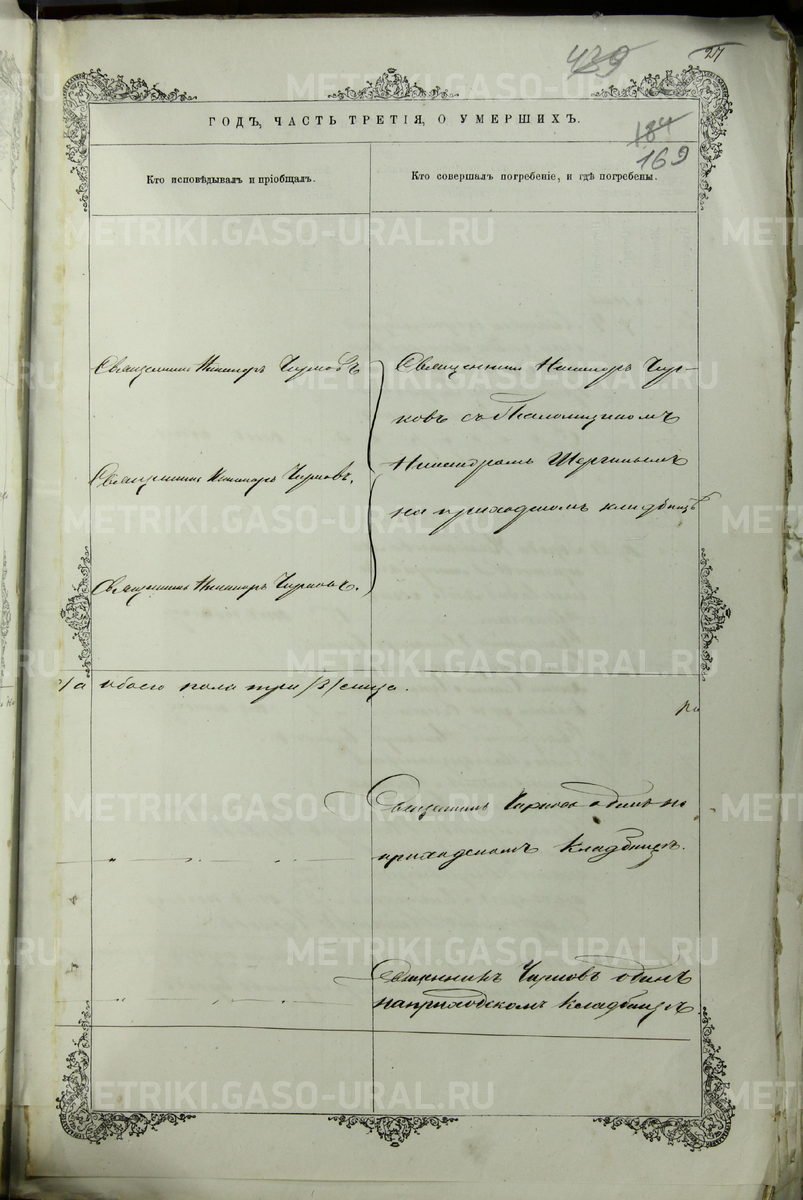 439
27
ГОДЪ, ЧАСТЬ ТРЕТІЯ, О УМЕРШИХЪ.
184
169
Кто исповѣдывалъ и пріобщалъ.
Кто совершалъ погребеніе, и гдѣ погребены.
Священникъ Никаноръ Чирковъ
Священникъ Никаноръ Чирковъ.
Священникъ Никаноръ Чирковъ.
Священникъ Никаноръ Чир-
ковъ съ Псаломщикомъ
на приходскомъ кладбищѣ
а обоего пола три /3/ лица.
Священникъ Чирковъ одинъ на
приходскомъ кладбищѣ.
Священникъ Чирковъ одинъ
на приходскомъ кладбищѣ
METRIKI.GASO-URAL.RU